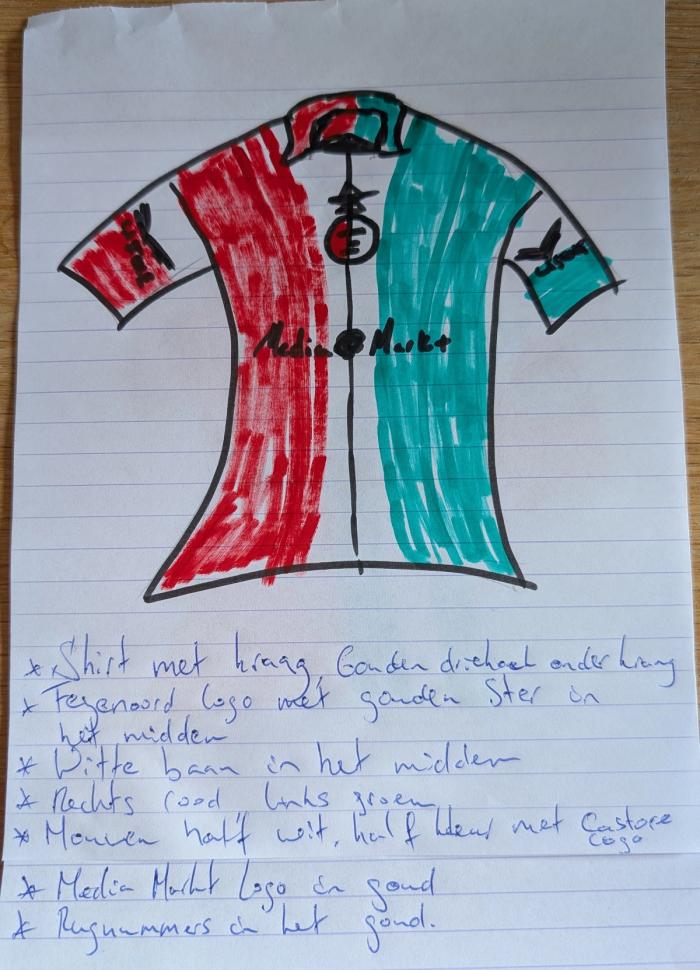 Media Markt
* Shirt met kraag, Gouden driehoek onder kraag
* Feyenoord logo met gouden Ster in
het midden
* Witte baan in het midden
* Rechts rood, links groen
* Mouwen half wit, half kleur met Castore
Logo
* Media Markt Logo in goud
* Rugnummers in het goud.